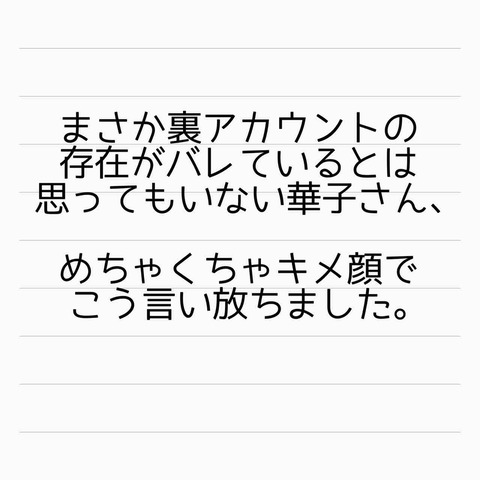 まさか裏アカウントの
存在がバレているとは
思ってもいない華子さん、
めちゃくちゃキメ顔で
こう言い放ちました。